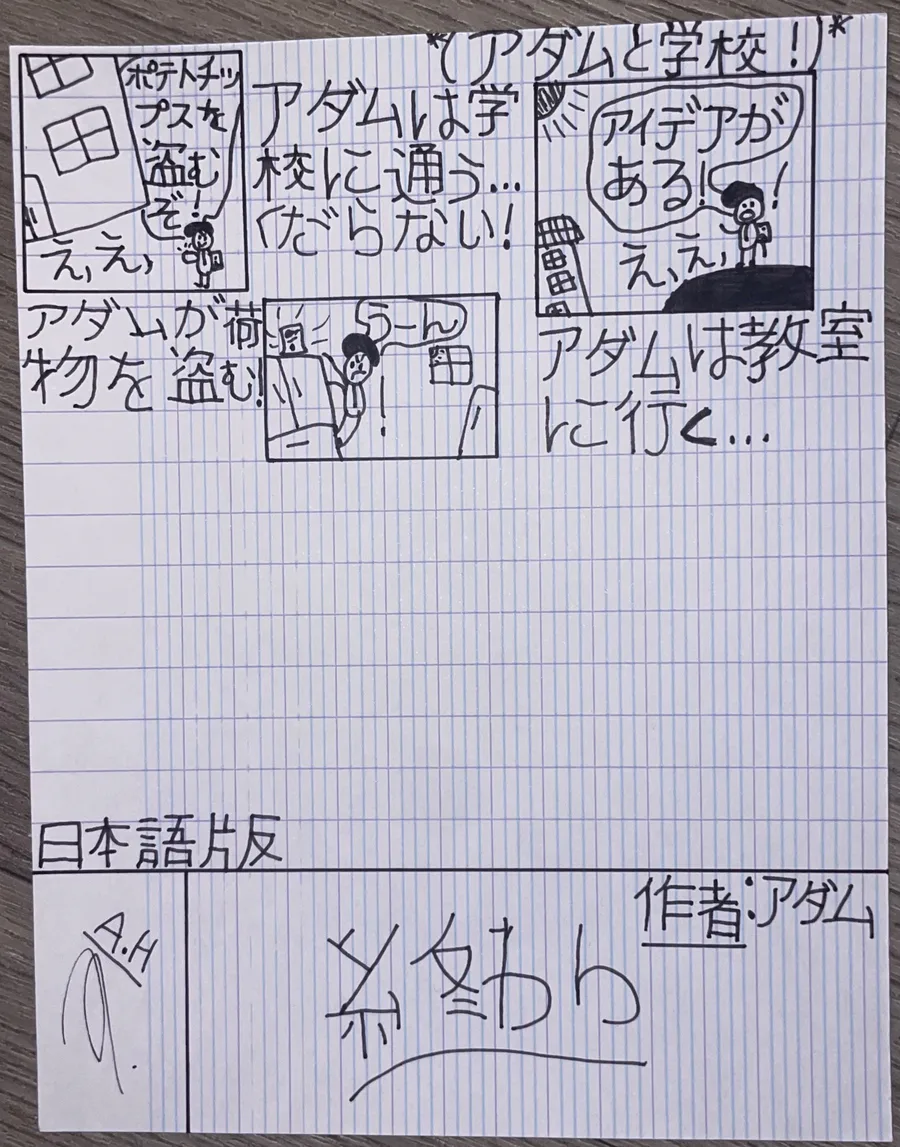 *(アダムと学校!)*
アイデアが
ある!
!
え,え,
アダムは学
校に通う...
くだらない!
ポテトチッ
プスを
盗む
ぞ!
え,え,
アダムは教室
に行く...
うーん
!
アダムが荷
物を盗む!
日本語版
作者:アダム
終わり
A.H